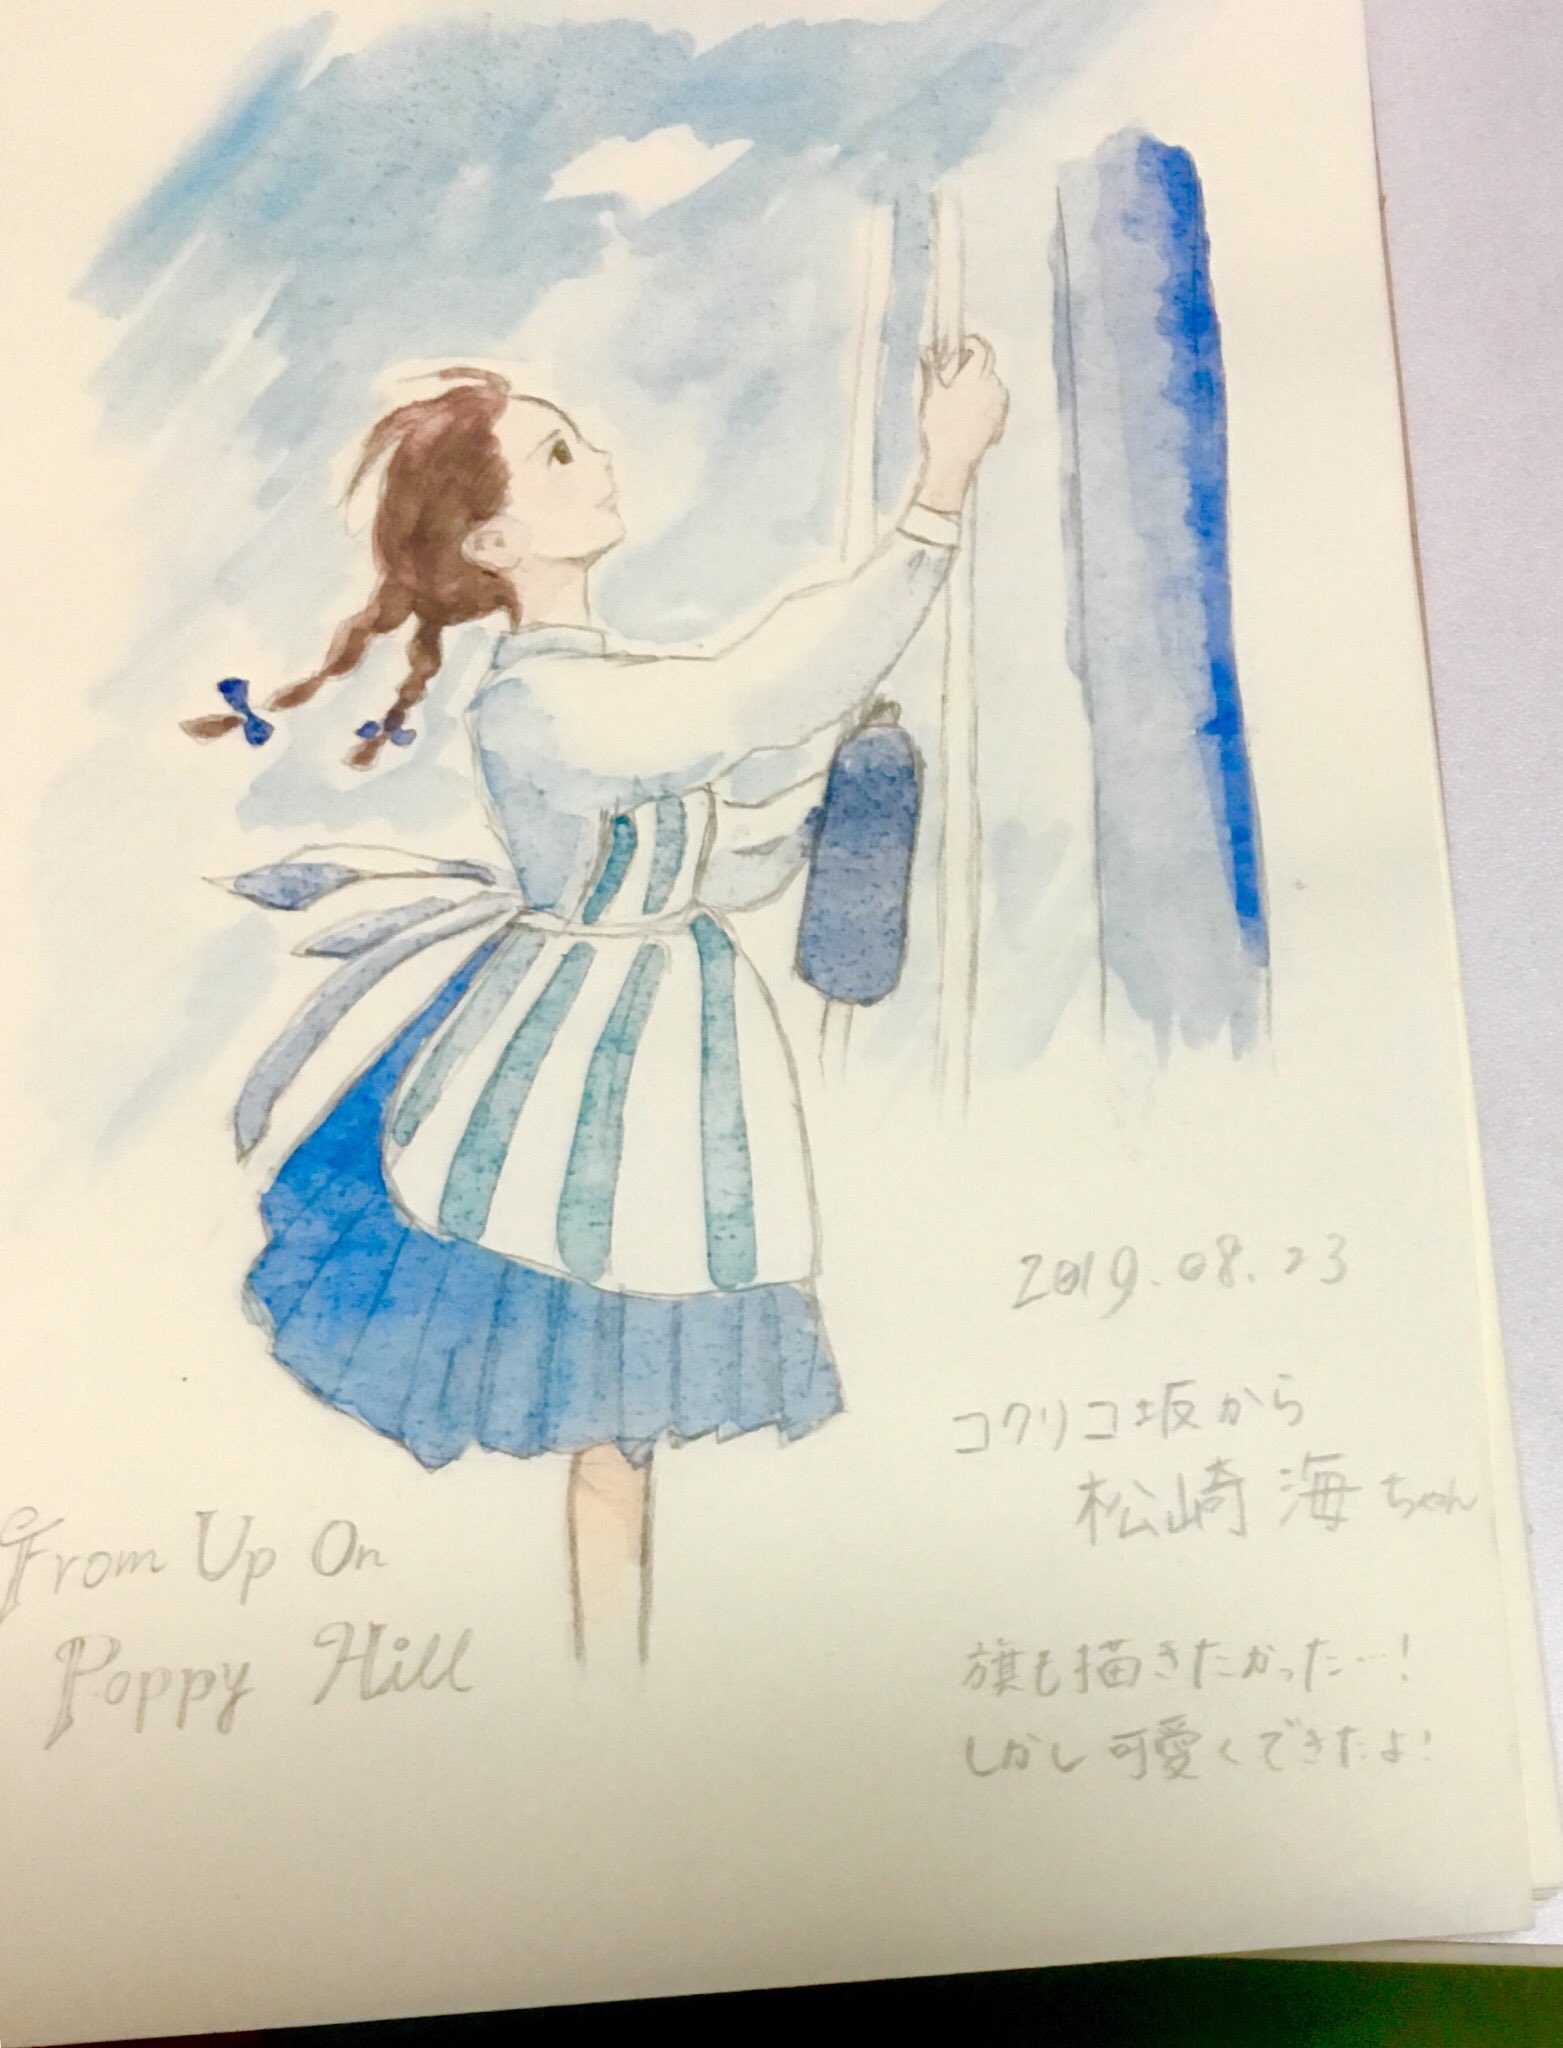 2019.08.23
コクリコ坂から
松崎 海ちゃん
From Up On
Poppy Hill
旗も描きたかった…!
しかし可愛くできたよ!